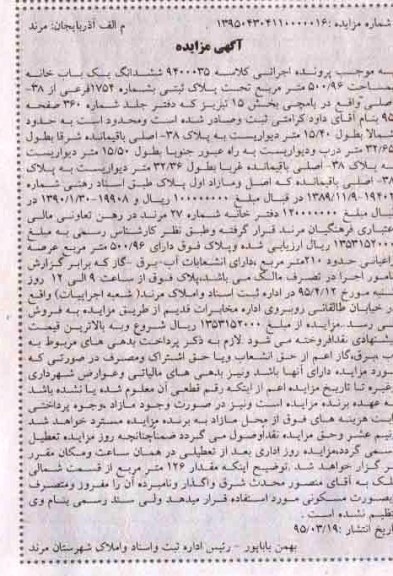 شماره مزایده :۱۳۹۵۰۴۳۰۴۱۱۰۰۰۰۰۱۶ م الف آذربایجان: مرند
آگهی مزایده
به موجب پرونده اجرائی کلاسه ۹۴۰۰۰۳۵ ششدانگ یک باب خانه
بمساحت ۵۰۰/۹۶ متر مربع تحت پلاک ثبتی بشماره ۱۷۵۴فرعی از ۳۸-
اصلی واقع در یامچی بخش ۱۵ تبریز که دفتر جلد شماره ۳۶۰ صفحه
۹۵ بنام آقای داود کرامتی ثبت وصادر شده است ومحدود است به حدود
شمالا بطول ۱۵/۲۰ متر دیواریست به پلاک ۳۸- اصلی باقیمانده شرقا بطول
۳۲/۶۵ متر درب ودیواریست به راه عبور جنوبا بطول ۱۵/۵۰ متر دیواریست
به پلاک ۳۸- اصلی باقیمانده غربا بطول ۳۲/۳۶ متر دیواریست به پلاک
۳۸- اصلی باقیمانده که اصل ومازاد اول پلاک طبق اسناد رهنی شماره
۱۹۴۰۲-۱۳۸۹/۱۱/۹ در قبال مبلغ ۱۰۰۰۰۰۰۰۰ ریال و ۱۹۹۰۸-۱۳۹۰/۱/۳۰ در
قبال مبلغ ۱۲۰۰۰۰۰۰۰ دفتر خانه شماره ۲۷ مرند در رهن تعاونی مالی
اعتباری فرهنگیان مرند قرار گرفته وطبق نظر کارشناس رسمی به مبلغ
۱۳۵۳۱۵۲۰۰۰ ریال ارزیابی شده وپلاک فوق دارای ۵۰۰/۹۶ متر مربع عرصه
واعیانی حدود ۲۱۰متر مربع ،دارای انشعابات آب-برق -گاز که برابر گزارش
مامور اجرا در تصرف مالک می باشد،پلاک فوق از ساعت ۹ الی ۱۲ روز
شنبه مورخ ۹۵/۴/۱۲ در اداره ثبت اسناد واملاک مرند( شعبه اجرائیات) واقع
در خیابان طالقانی روبروی اداره مخابرات قدیم از طریق مزایده به فروش
می رسد .مزایده از مبلغ ۱۳۵۳۱۵۲۰۰۰ ریال شروع وبه بالاترین قیمت
پیشنهادی نقدافروخته می شود .لازم به ذکر پرداخت بدهی های مربوط به
آب،برق،گاز اعم از حق انشعاب ویا حق اشتراک ومصرف در صورتی که
مورد مزایده دارای آنها باشد ونیز بدهی های مالیاتی وعوارض شهرداری
وغیره تا تاریخ مزایده اعم از اینکه رقم قطعی آن معلوم شده یا نشده باشد
به عهده برنده مزایده است ونیز در صورت وجود مازاد ،وجوه پرداختی
بابت هزینه های فوق از محل مازاد به برنده مزایده مسترد خواهد شد
ونیم عشر وحق مزایده نقداوصول می گردد ضمناچنانچه روز مزایده تعطیل
رسمی گردد،مزایده روز اداری بعد از تعطیلی در همان ساعت ومکان مقرر
برگزار خواهد شد .توضیح اینکه مقدار ۱۲۶ متر مربع از قسمت شمالی
ملک به آقای منصور محدث شرق واگذار ونامبرده آن را مفروز ومتصرف
بصورت مسکونی مورد استفاده قرار میدهد ولی سند رسمی بنام وی
تنظیم نشده است .
تاریخ انتشار :۹۵/۰۳/۱۹
بهمن باباپور - رئیس اداره ثبت واسناد واملاک شهرستان مرند